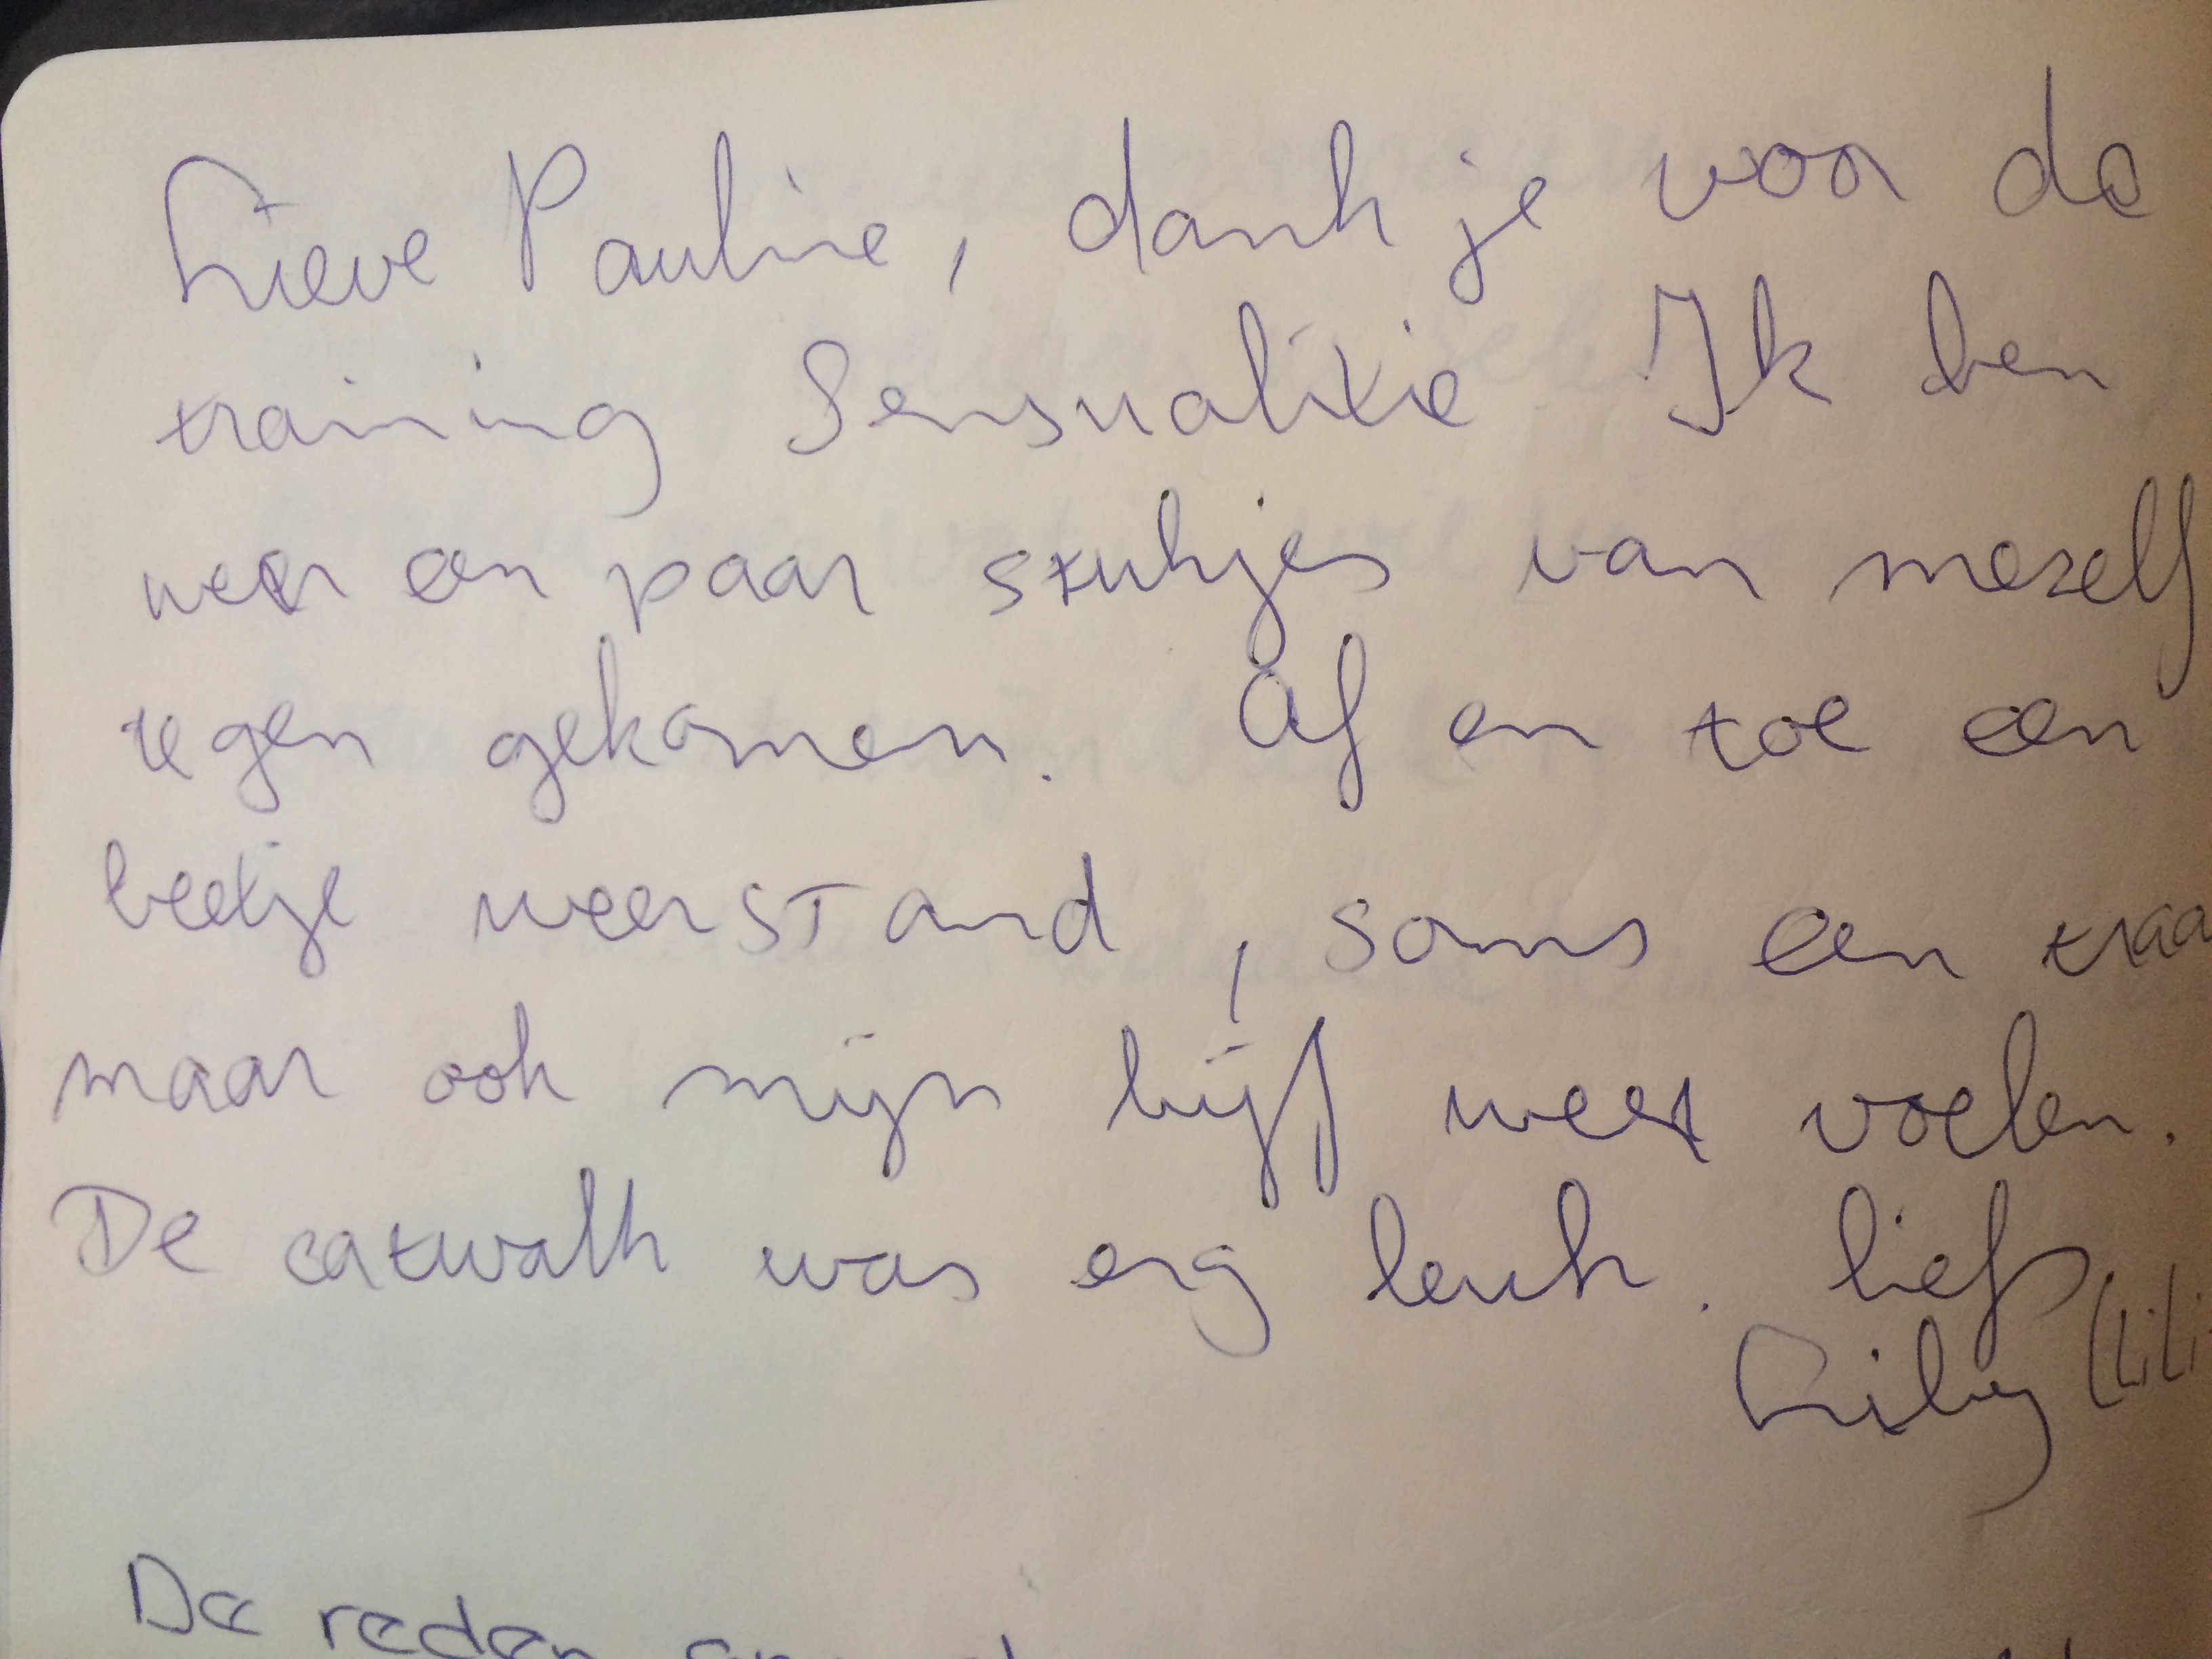 Lieve Pauline, dank je voor de
training Sensualitie Ik ben
weer een paar stukjes van mezelf
tegen gekomen. Af en toe een
beetje weerstand, soms een traa
maar ook mijn lijf weer voelen.
De catwalk was erg leuk. liefs
(Lili
De reden